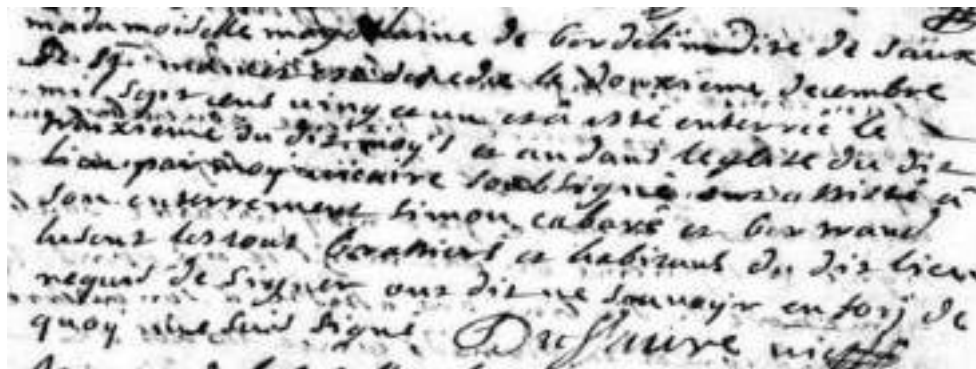 madamoiselle magdelaine de de saux
de St est decedee le douxieme decembre
mil sept cens vingt et un et a esté enterrée le
traixieme du dit moys et an dans leglise du dit
lieu par moy vicaire soubsigné ont assisté a
son enterrement simon cabaré et bertrand
lesout brassiers et habitans du dit lieu
requis de signer ont dit ne scavoyr en foy de
quoy me suis signé Dufaure vic